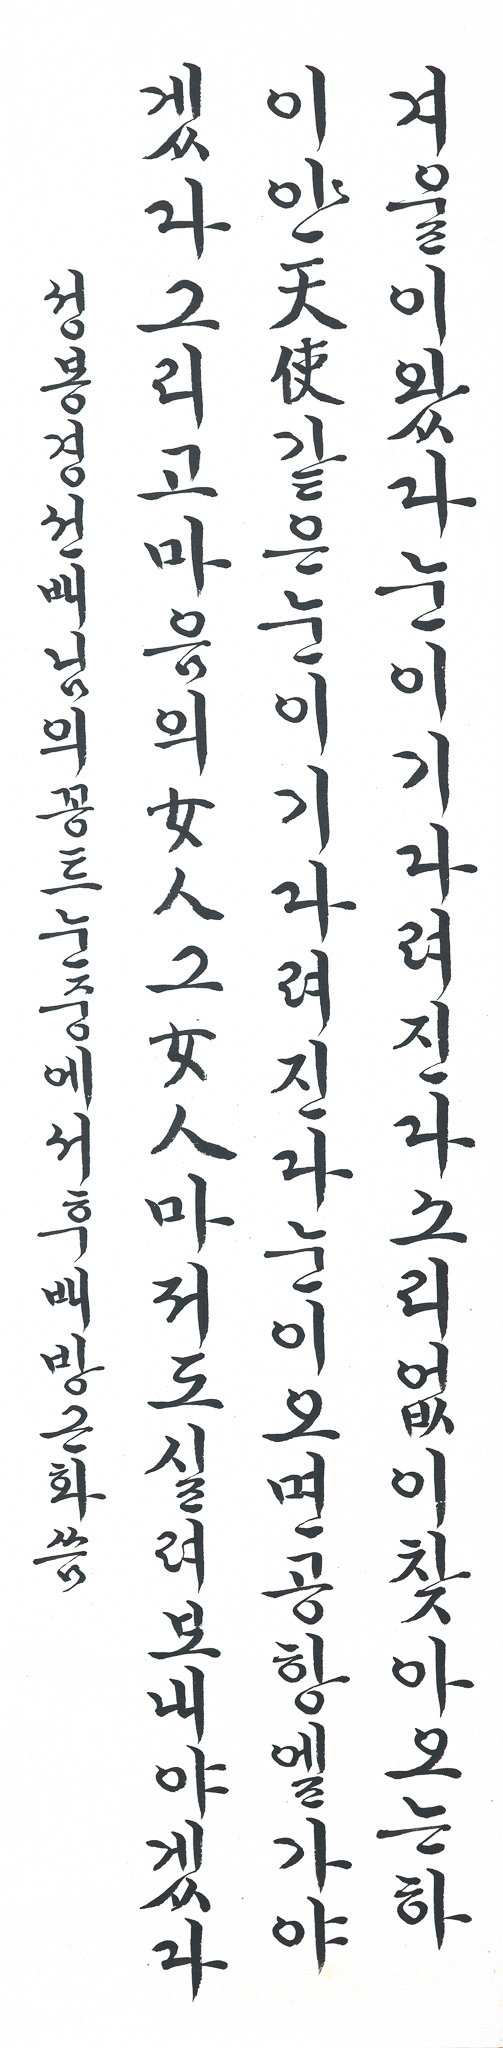 겨울이왔다눈이기다려진다소리없이찾아오는하
이얀天使같은눈이기다려진다눈이오면공항엘가야
겠다그리고마음의女人그女人마저도실려보내야겠다
성봉경선배님의꽁트눈중에서후배방근화씀